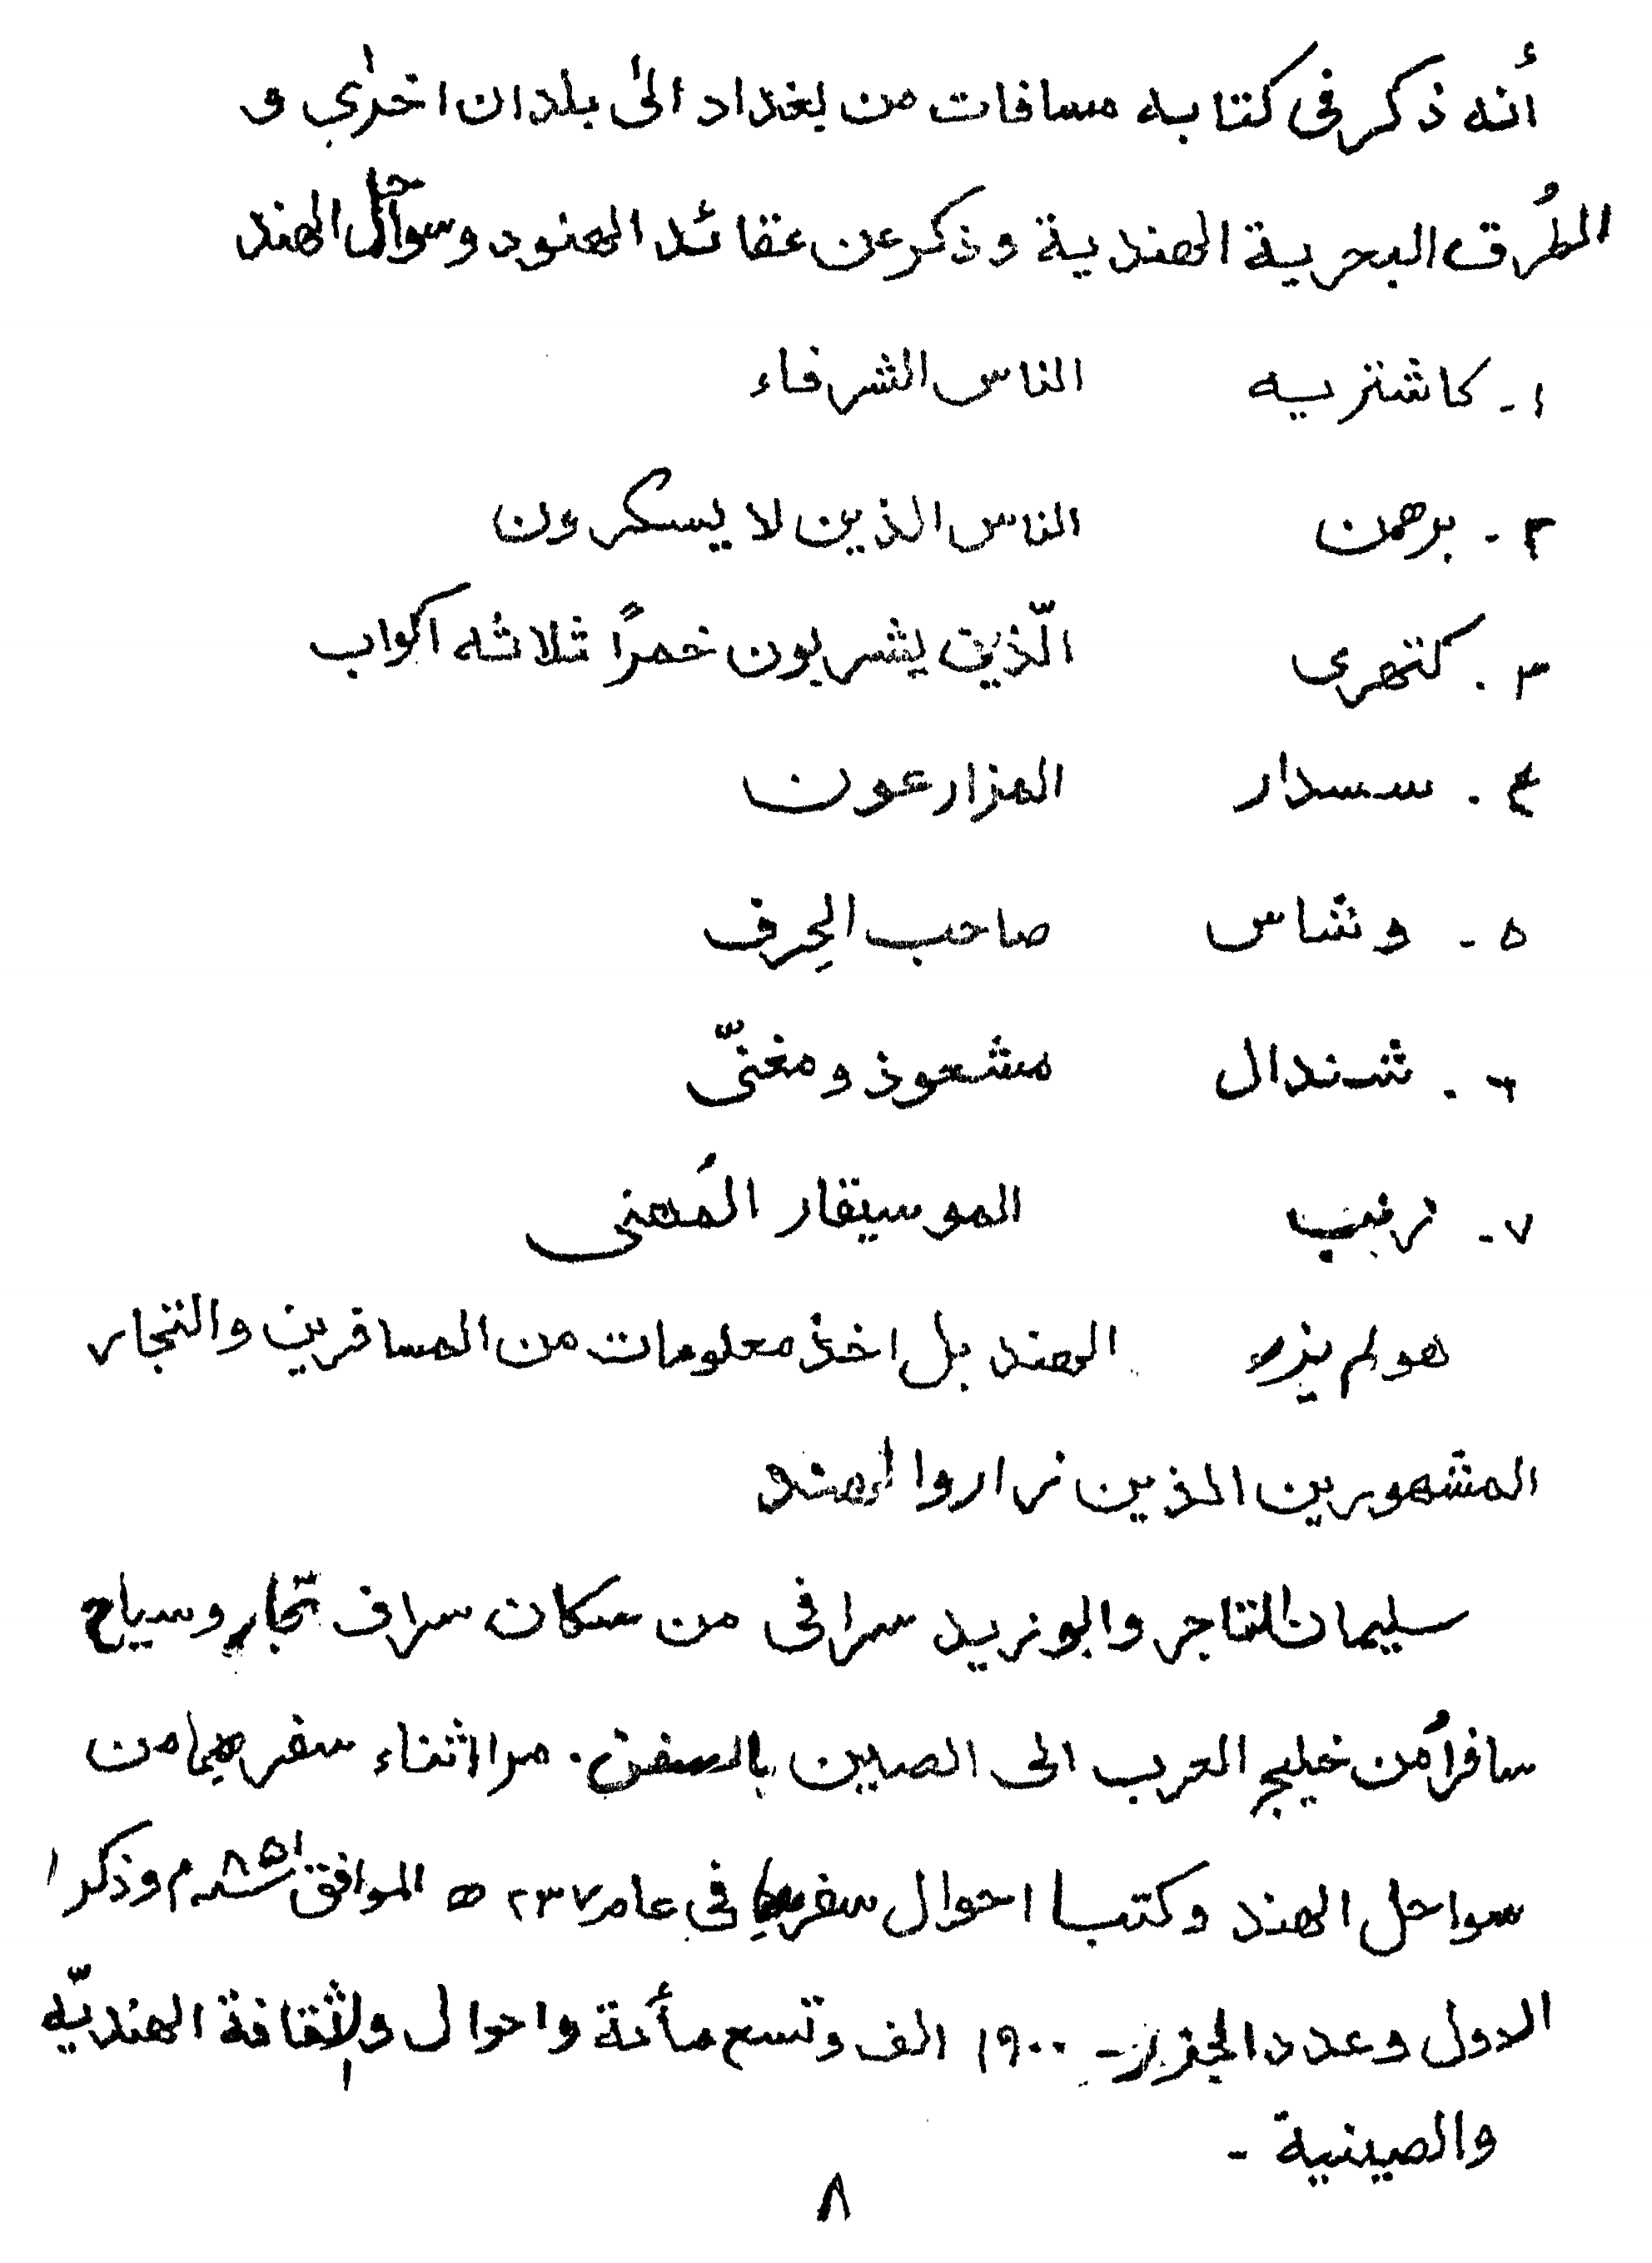 أنه ذكر فى كتابه مسافات من بغداد الىٰ بلدان اخرٰي و
الطُرق البحرية الهندية وذكر عن عقائد الهنود وسواحل الهند
١- كاشتريه الناس الشرفاء
٢- برهمن الناس الذين لا يسكرون
٣. كتهرى الّذين يشربون خمرًا ثلاثه اكواب
٤. سسدار المزارعون
٥- وشاس صاحب الحِرف
٦. شندال مشعوذ و مغنّى
٧- زنبب الموسيقار المُغنى
هو لم يزر الهند بل اخذ معلومات من المسافرين والتجار
المشهورين الذين زاروا الهند
سليمان التاجر وابو زيد سرافى من سكان سراف تجار وسياح
سافرا من خليج العرب الى الصين بالسفن. مرا اثناء سفرهما من
سواحل الهند وكتبا احوال سفرهما فى عام ٢٣٧ ه الموافق ٨٥١ م وذكرا
الدول وعدد الجزر- ١٩٠٠ الف وتسع مأئة واحوال والثقافة الهنديّه
والصينية -
٨